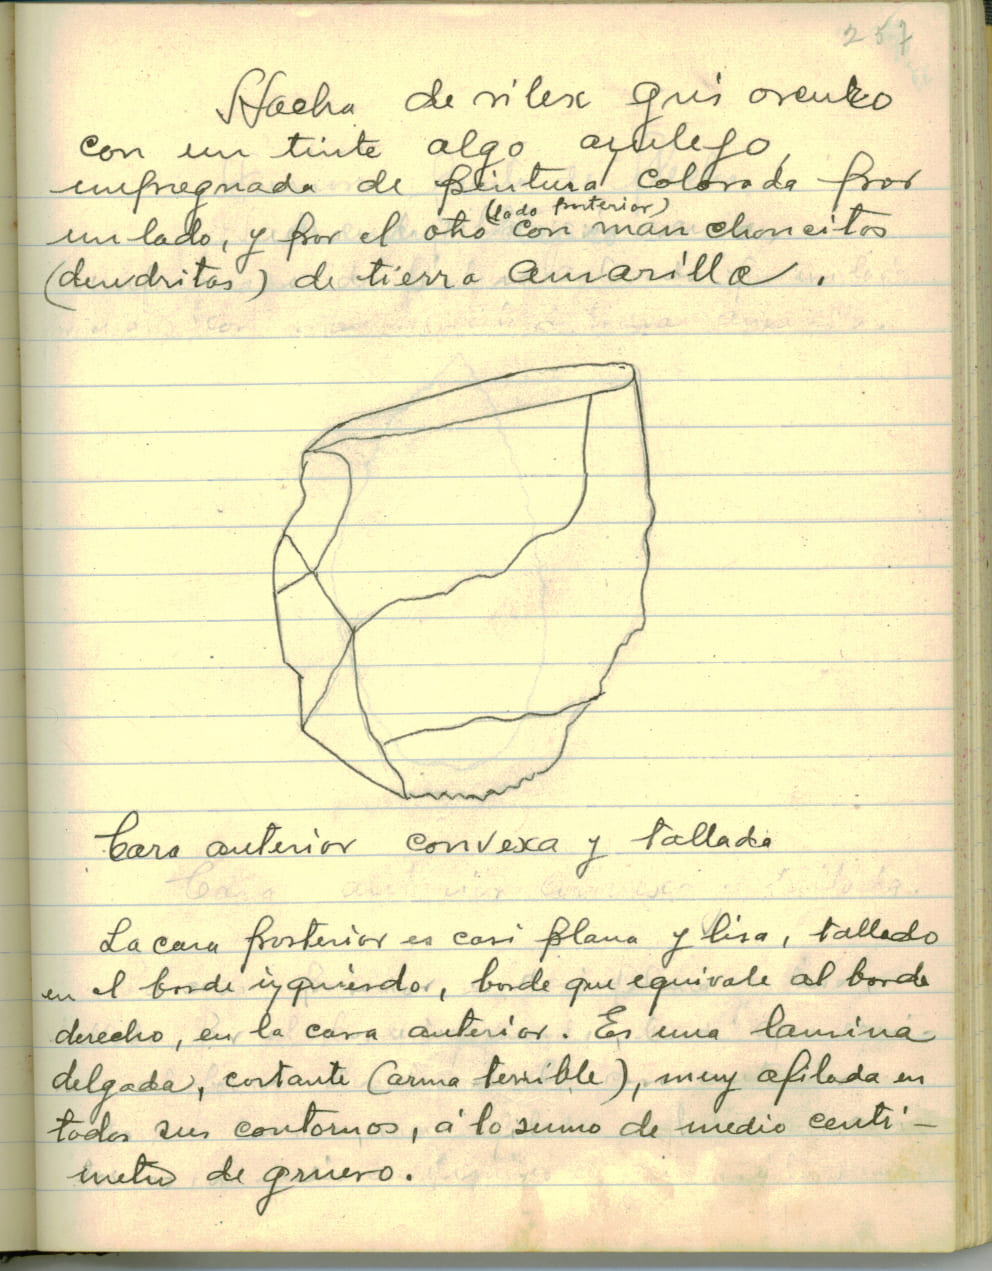 257
Hacha de silex gris oscuro
con un tinte algo azulejo,
impregnada de pintura colorada por
un lado, y por el otro (lado posterior) con manchoncitos
(dendritas) de tierra amarilla.
Cara anterior convexa y tallada
La cara posterior es casi plana y lisa, tallado
en el borde izquierdo, borde que equivale al borde
derecho, en la cara anterior. Es una lamina
delgada, cortante (arma terrible), muy afilada en
todos sus contornos, á lo sumo de medio centí-
metro de grueso.